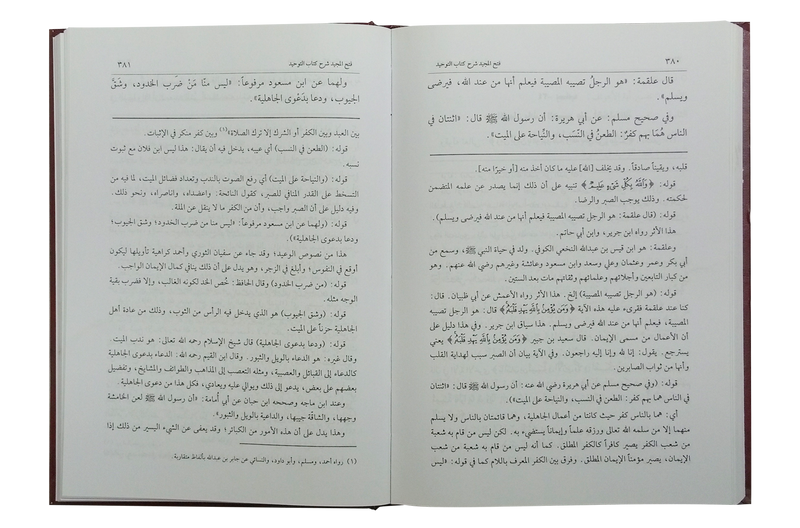 ٣٨٠
فتح المجيد شرح كتاب التوحيد
قال علقمة: «هو الرجلُ تصيبه المصيبة فيعلم أنها من عند الله، فيرضى
ويسلم».
وفي صحيح مسلم: عن أبي هريرة: أن رسول الله ﷺ قال: «اثنتان في
الناس هُمَا بهم كفرٌ: الطعنُ في النَّسَب، والنِّياحة على الميت».
قلبه، ويقيناً صادقاً. وقد يخلف [الله] عليه ما كان أخذ منه [أو خيرًا منه].
قوله: ﴿وَٱللَّهُ بِكُلِّ شَىْءٍ عَلِيمٌ﴾ تنبيه على أن ذلك إنما يصدر عن علمه المتضمن
لحكمته. وذلك يوجب الصبر والرضا.
قوله: (قال علقمة: هو الرجل تصيبه المصيبة فيعلم أنها من عند الله فيرضى ويسلم).
هذا الأثر رواه ابن جرير، وابن أبي حاتم.
وعلقمة: هو ابن قيس بن عبدالله النخعي الكوفي. ولد في حياة النبي ﷺ، وسمع من
أبي بكر وعمر وعثمان وعلي وسعد وابن مسعود وعائشة وغيرهم رضي الله عنهم. وهو
من كبار التابعين وأجلائهم وعلمائهم وثقاتهم مات بعد الستين.
قوله: (هو الرجل تصيبه المصيبة) إلخ. هذا الأثر رواه الأعمش عن أبي ظبيان. قال:
كنا عند علقمة فقرىء عليه هذه الآية ﴿وَمَن يُؤْمِنۢ بِٱللَّهِ يَهْدِ قَلْبَهُۥ﴾ قال: هو الرجل تصيبه
المصيبة، فيعلم أنها من عند الله فيرضى ويسلم. هذا سياق ابن جرير. وفي هذا دليل على
أن الأعمال من مسمى الإيمان. قال سعيد بن جبير ﴿وَمَن يُؤْمِنۢ بِٱللَّهِ يَهْدِ قَلْبَهُۥ﴾ يعني
يسترجع. يقول: إنا لله وإنا إليه راجعون. وفي الآية بيان أن الصبر سبب لهداية القلب
وأنها من ثواب الصابرين.
قوله: (وفي صحيح مسلم عن أبي هريرة رضي الله عنه: أن رسول الله ﷺ قال: «اثنتان
في الناس هما بهم كفر: الطعن في النسب، والنياحة على الميت»).
أي: هما بالناس كفر حيث كانتا من أعمال الجاهلية، وهما قائمتان بالناس ولا يسلم
منهما إلا من سلمه الله تعالى ورزقه علماً وإيماناً يستضيء به. لكن ليس من قام به شعبة
من شعب الكفر يصير كافراً كالكفر المطلق. كما أنه ليس من قام به شعبة من شعب
الإيمان، يصير مؤمناً الإيمان المطلق. وفرق بين الكفر المعرف باللام كما في قوله: «ليس
فتح المجيد شرح كتاب التوحيد
٣٨١
ولهما عن ابن مسعود مرفوعاً: «ليس منّا مَنْ ضَرب الخدود، وشَقَّ
الجيوب، ودعا بدَعْوى الجاهلية».
بين العبد وبين الكفر أو الشرك إلا ترك الصلاة»(١) وبين كفر منكر في الإثبات.
قوله: (الطعن في النسب) أي عيبه، يدخل فيه أن يقال: هذا ليس ابن فلان مع ثبوت
نسبه.
قوله: (والنياحة على الميت) أي رفع الصوت بالندب وتعداد فضائل الميت، لما فيه من
التسخط على القدر المنافي للصبر، كقول النائحة: واعضداه، واناصراه، ونحو ذلك.
وفيه دليل على أن الصبر واجب، وأن من الكفر ما لا ينقل عن الملة.
قوله: (ولهما عن ابن مسعود مرفوعاً: «ليس منا من ضرب الخدود؛ وشق الجيوب؛
ودعا بدعوى الجاهلية»).
هذا من نصوص الوعيد؛ وقد جاء عن سفيان الثوري وأحمد كراهية تأويلها ليكون
أوقع في النفوس؛ وأبلغ في الزجر، وهو يدل على أن ذلك ينافي كمال الإيمان الواجب.
قوله: (من ضرب الخدود) وقال الحافظ: خُصَّ الخد لكونه الغالب، وإلا فضرب بقية
الوجه مثله.
قوله: (وشق الجيوب) هو الذي يدخل فيه الرأس من الثوب، وذلك من عادة أهل
الجاهلية حزناً على الميت.
قوله: (ودعا بدعوى الجاهلية) قال شيخ الإسلام رحمه الله تعالى: هو ندب الميت.
وقال غيره: هو الدعاء بالويل والثبور. وقال ابن القيم رحمه الله: الدعاء بدعوى الجاهلية
كالدعاء إلى القبائل والعصبية، ومثله التعصب إلى المذاهب والطوائف والمشايخ، وتفضيل
بعضهم على بعض، يدعو إلى ذلك ويوالي عليه ويعادي، فكل هذا من دعوى الجاهلية.
وعند ابن ماجه وصححه ابن حبان عن أبي أُمامة: «أن رسول الله ﷺ لعن الخامشة
وجهها، والشاقة جيبها، والداعية بالويل والثبور».
وهذا يدل على أن هذه الأمور من الكبائر؛ وقد يعفى عن الشيء اليسير من ذلك إذا
(١) رواه أحمد، ومسلم، وأبو داود، والنسائي عن جابر بن عبدالله بألفاظ متقاربة.